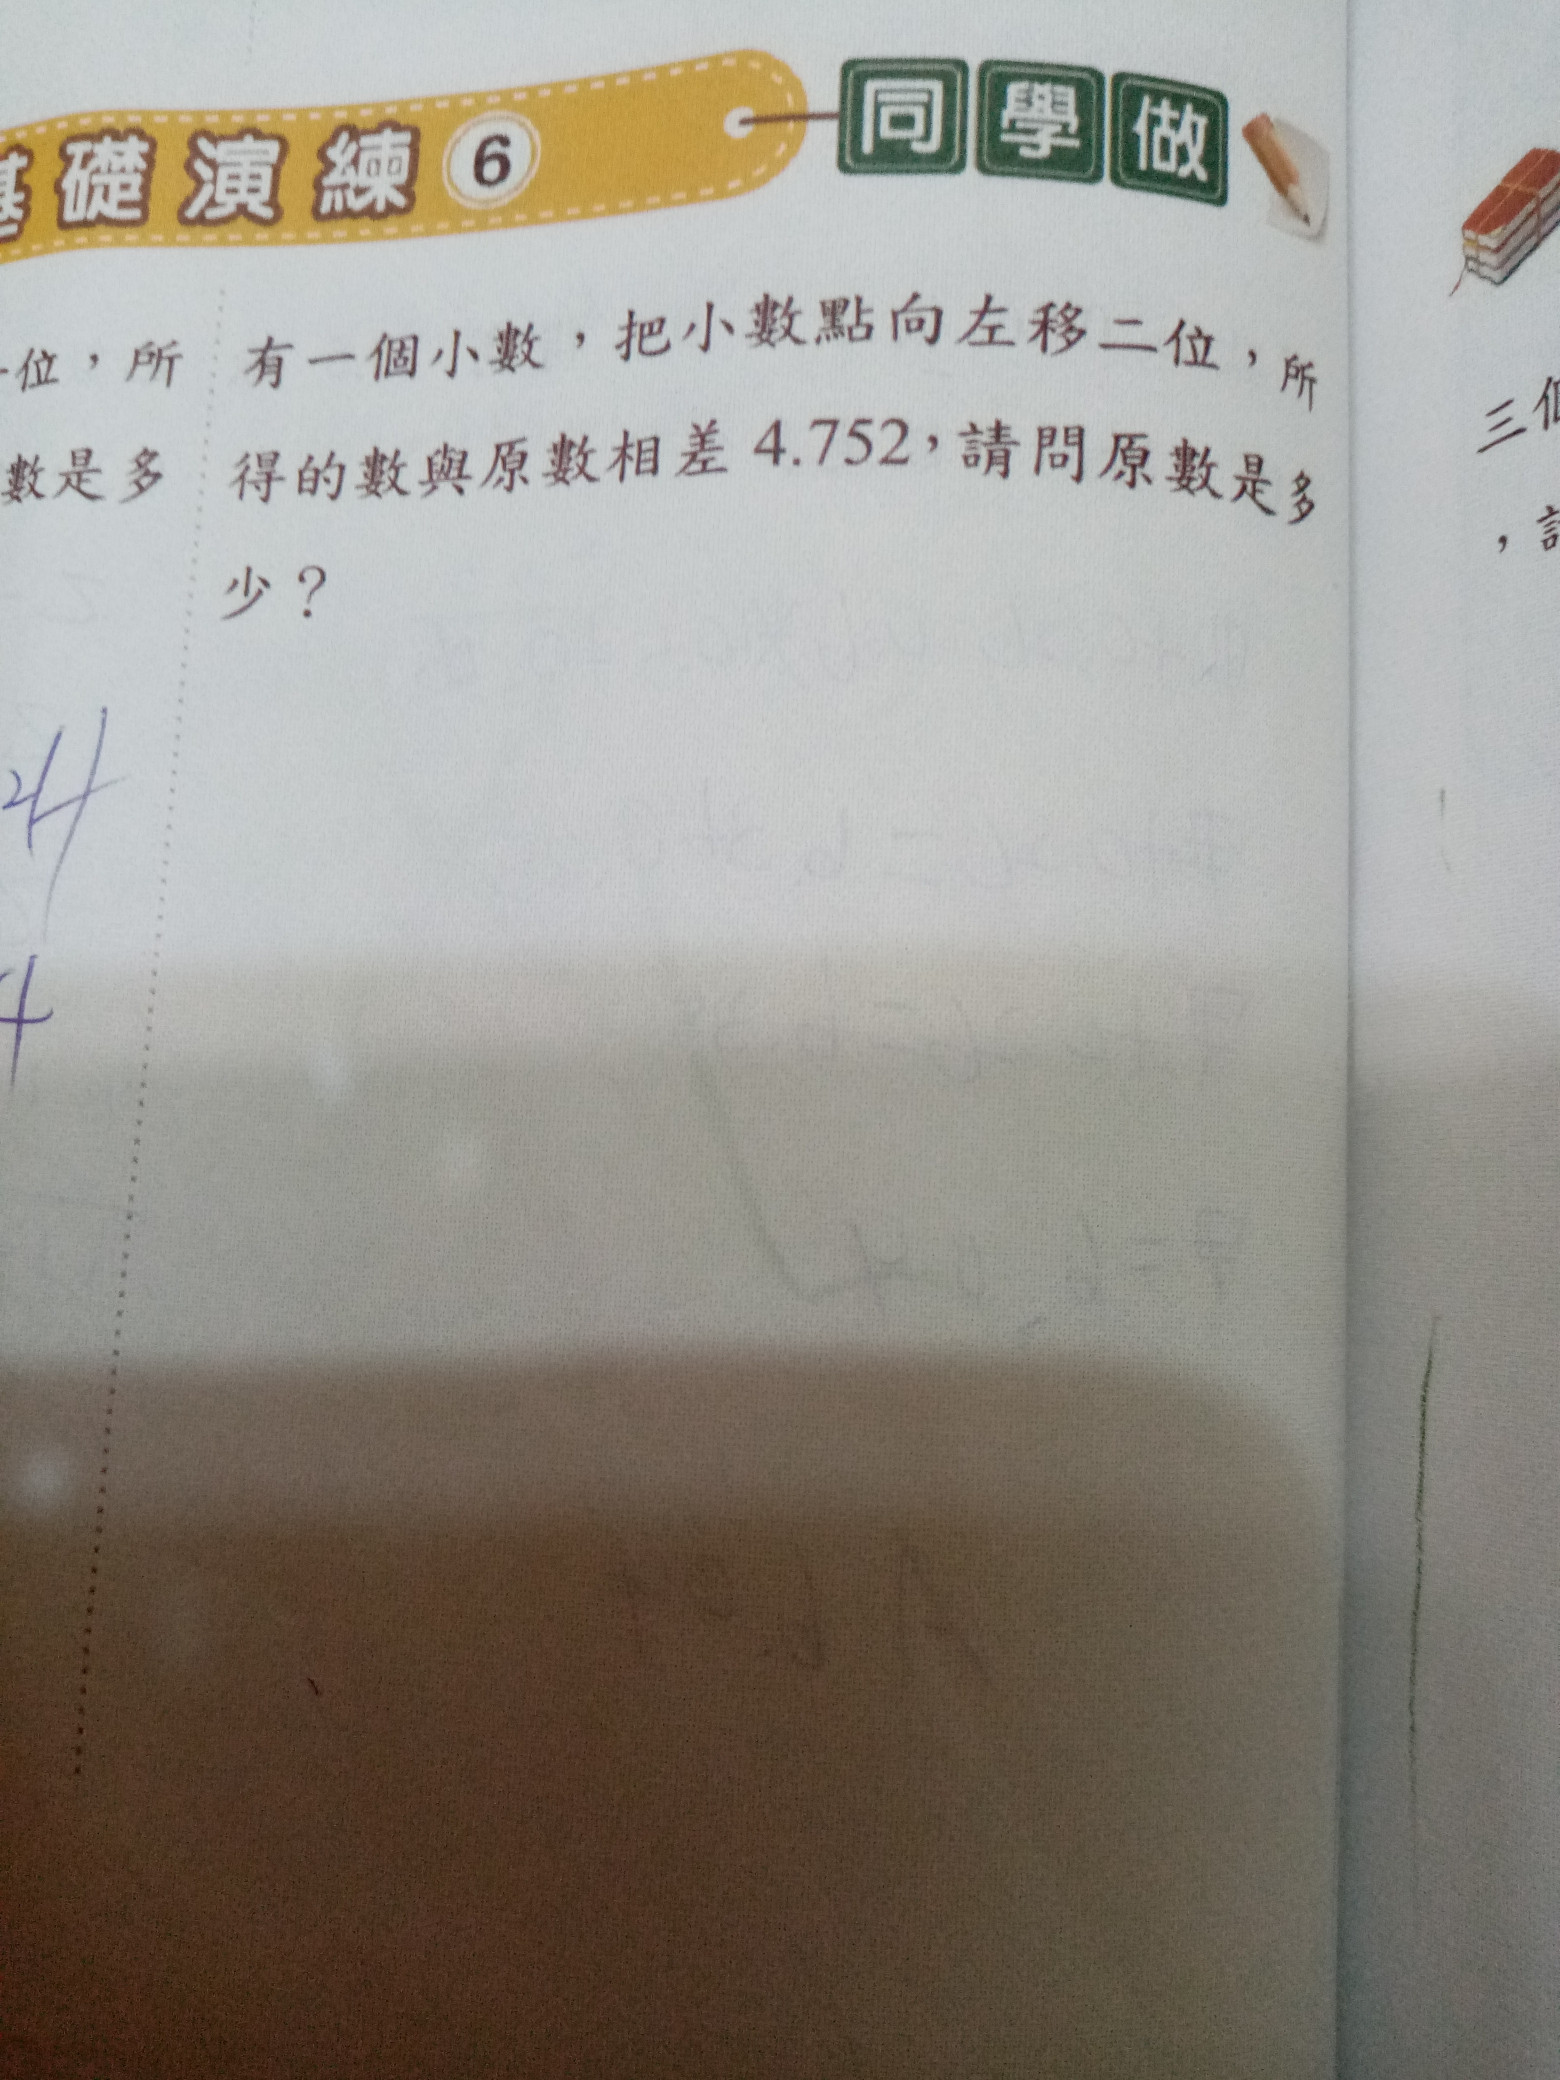 基礎演練 6 同學做
有一個小數，把小數點向左移二位，所
得的數與原數相差 4.752，請問原數是多
少？
位，所
數是多
24
4
三個
，請